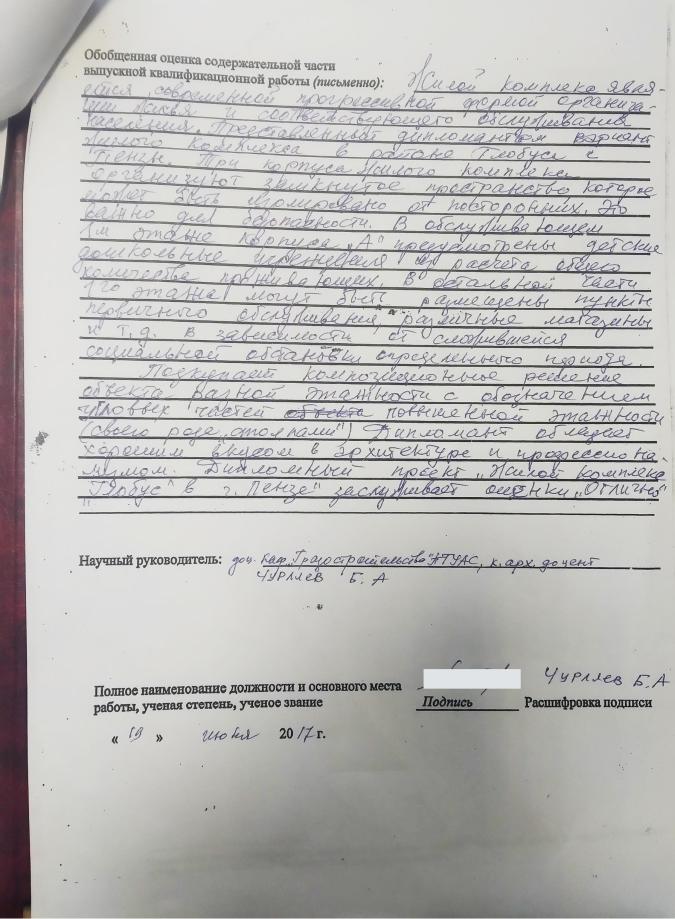 Обобщенная оценка содержательной части
выпускной квалификационной работы (письменно): Жилой комплекс явля-
ется современной прогрессивной формой организа-
ции жилья и соответствующего обслуживания
населения. Представленный дипломантом вариант
жилого комплекса в районе Глобуса г.
Пензы. Три корпуса жилого комплекса
организуют замкнутое пространство которое
может быть изолировано от посторонних. Это
важно для безопасности. В обслуживающем
1м этаже корпуса „А" предусмотрены детские
дошкольные учреждения из расчета общего
количества проживающих. В остальной части
1го этажа могут быть размещены пункты
первичного обслуживания, различные магазины
и т.д. в зависимости от сложившейся
социальной обстановки определенного периода.
Подкупает композиционное решение
объекта разной этажности с обозначением
угловых частей объекта повышенной этажности
(своего рода „столпами") Дипломант обладает
хорошим вкусом в архитектуре и профессиона-
лизмом. Дипломный проект „Жилой комплекс
"Глобус" в г. Пензе" заслуживает оценки „Отлично"
Научный руководитель: доц. каф. „Градостроительство" ПГУАС, к. арх. доцент
Чурляев Б. А
Чурляев Б. А
Полное наименование должности и основного места
работы, ученая степень, ученое звание Подпись Расшифровка подписи
« 19 » июня 2017 г.